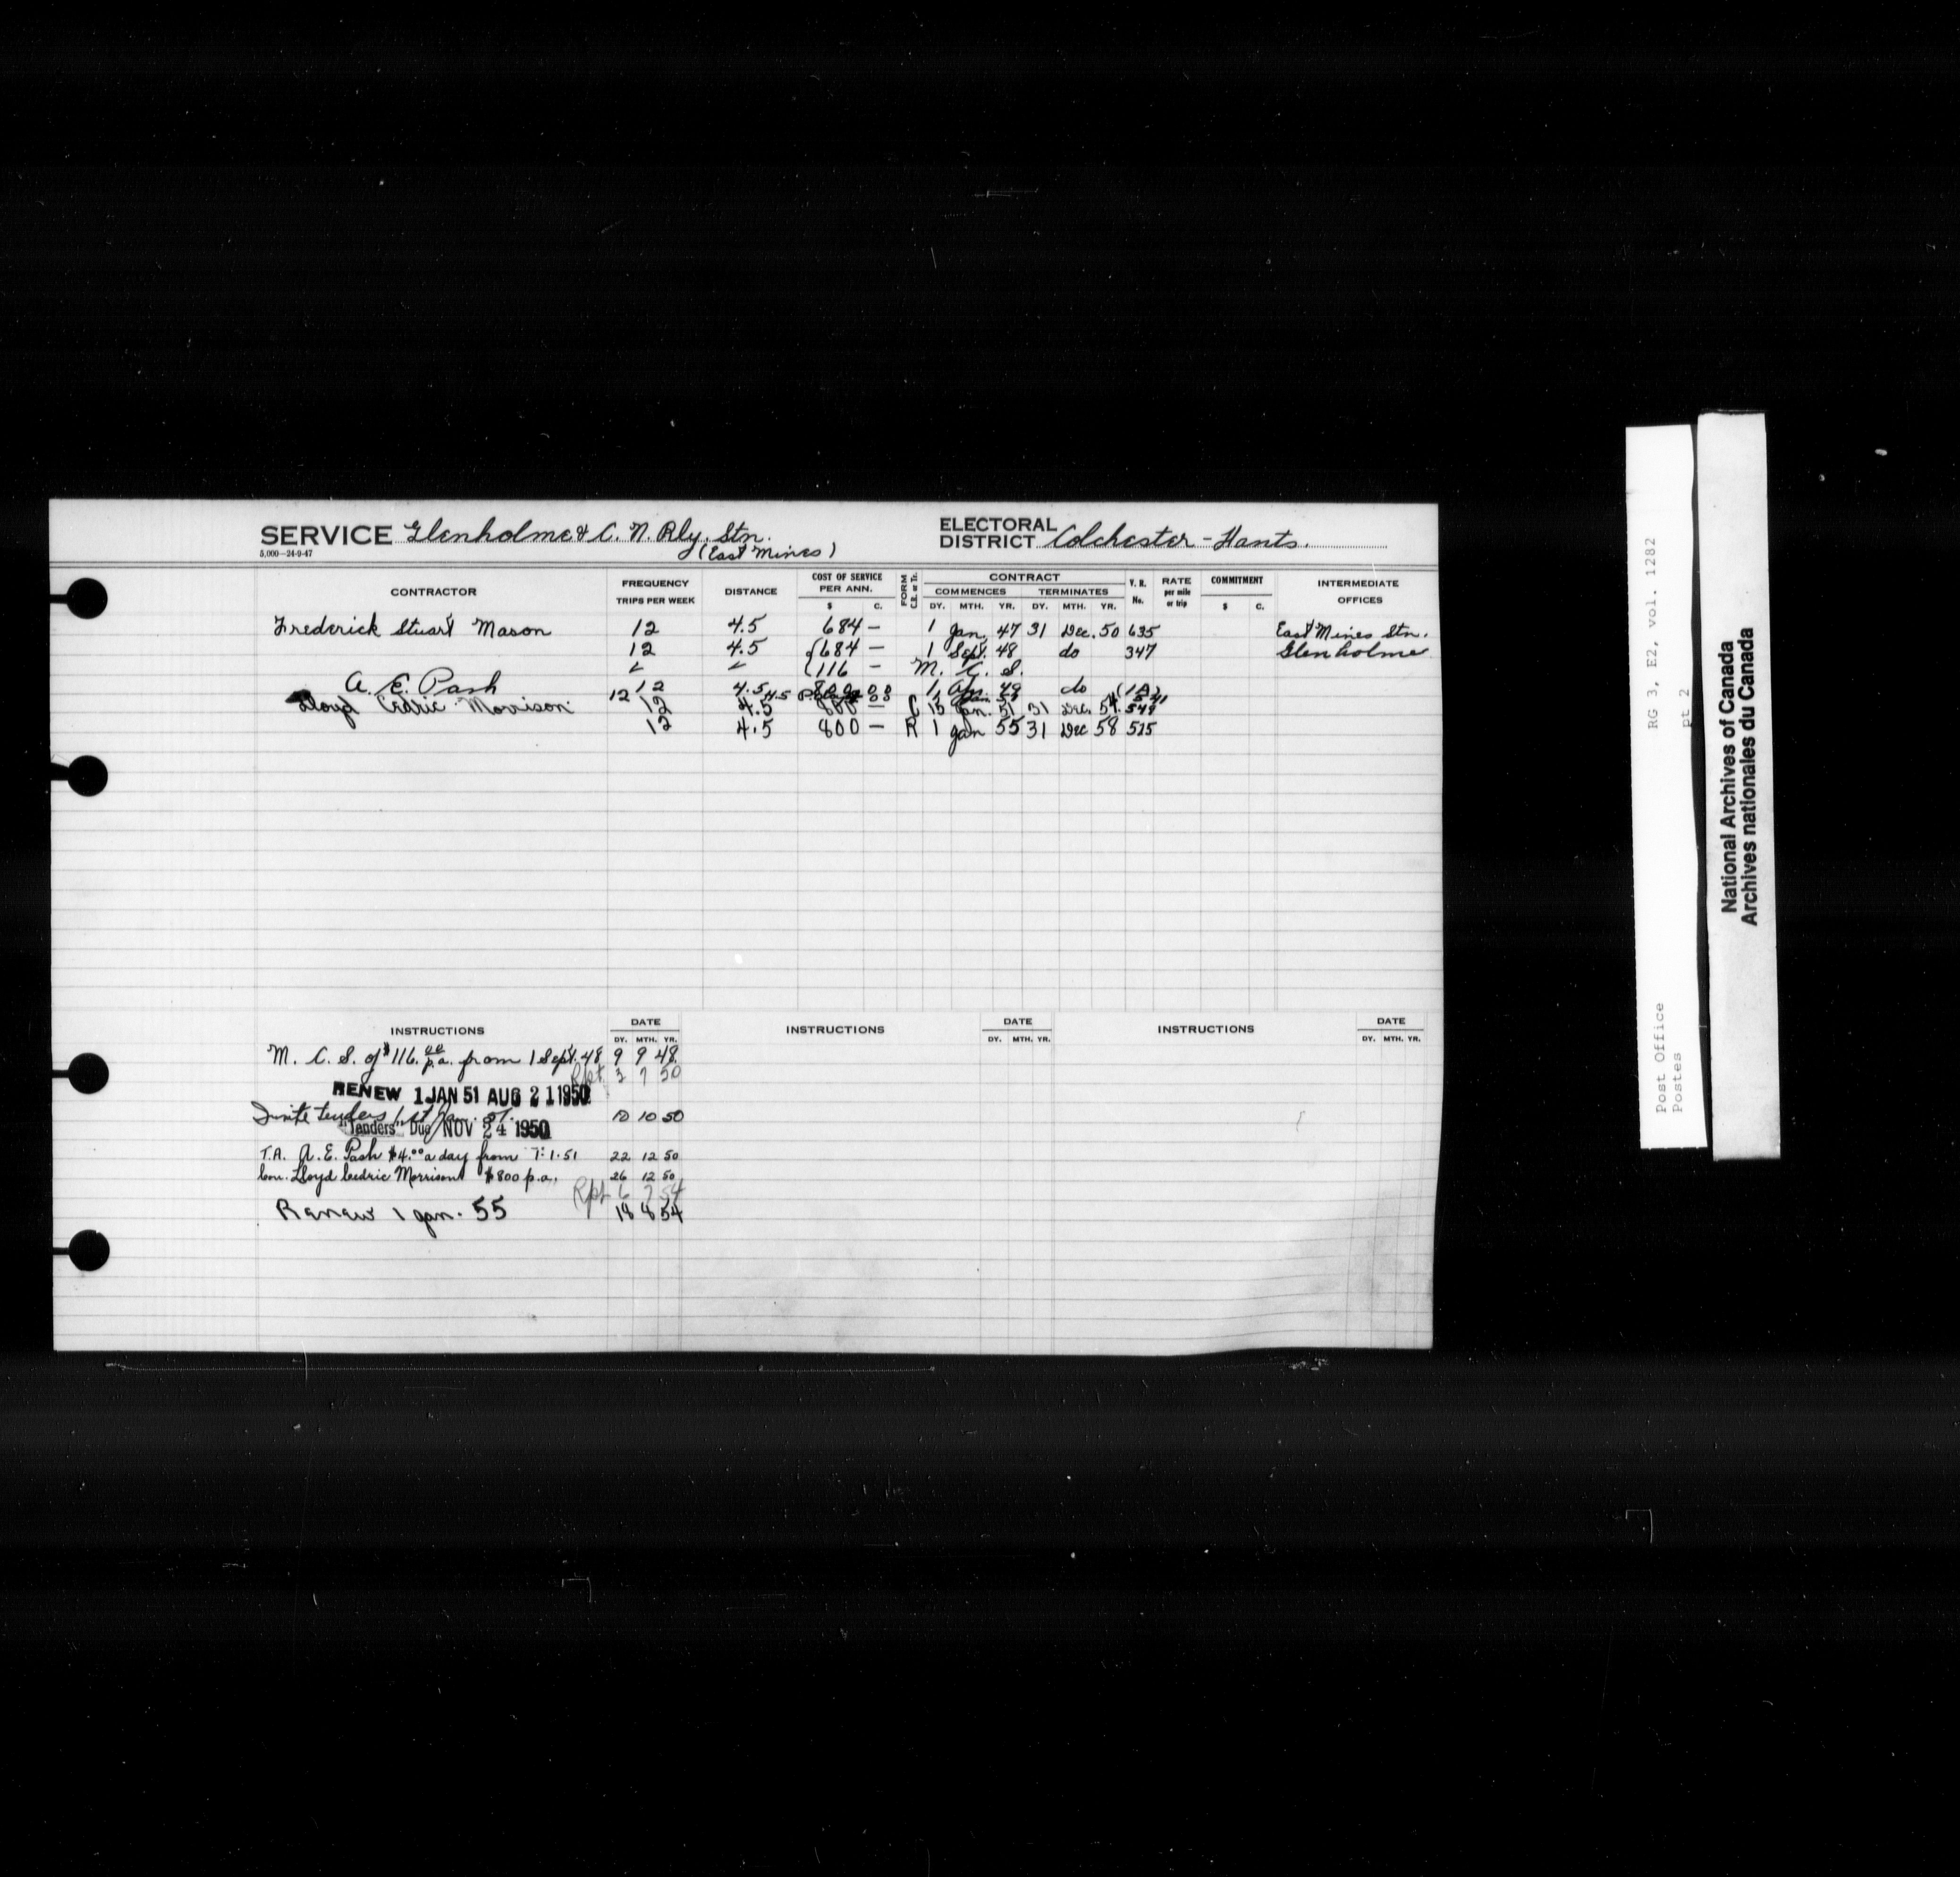 SERVICE Glenholme & C. N. Rly. Stn.
(East Mines)
5,000—24-9-47
ELECTORAL DISTRICT Colchester - Hants.
CONTRACTOR FREQUENCY TRIPS PER WEEK DISTANCE COST OF SERVICE PER ANN. $ C. FORM C.R. or Tr. CONTRACT COMMENCES DY. MTH. YR. TERMINATES DY. MTH. YR. V. R. No. RATE per mile or trip COMMITMENT $ C. INTERMEDIATE OFFICES
Frederick Stuart Mason 12 4.5 684 — 1 Jan. 47 31 Dec. 50 635 East Mines Stn.
12 4.5 684 — 1 Sept. 48 do 347 Glenholme
116 — M. C. S.
A. E. Pash 12 4.5 1 49 do (1A)
Lloyd Cedric Morrison 12 4.5 800 — C 15 Jan. 51 31 Dec. 54 549
12 4.5 800 — R 1 Jan 55 31 Dec 58 515
INSTRUCTIONS DATE DY. MTH. YR. INSTRUCTIONS DATE DY. MTH. YR. INSTRUCTIONS DATE DY. MTH. YR.
M. C. S. of $116.00 p.a. from 1 Sept. 48 9 9 48
Rpt. 3 7 50
RENEW 1 JAN 51 AUG 21 1950
Invite tenders 1st Jan. 51. 10 10 50
"Tenders" Due NOV 24 1950
T.A. A. E. Pash $4.00 a day from 1.51 22 12 50
Con. Lloyd Cedric Morrison $800 p.a. 26 12 50
Rpt 6 7 54
Renew 1 Jan. 55 18 8 54
RG 3, E2, vol. 1282
pt 2
Post Office
Postes
National Archives of Canada
Archives nationales du Canada